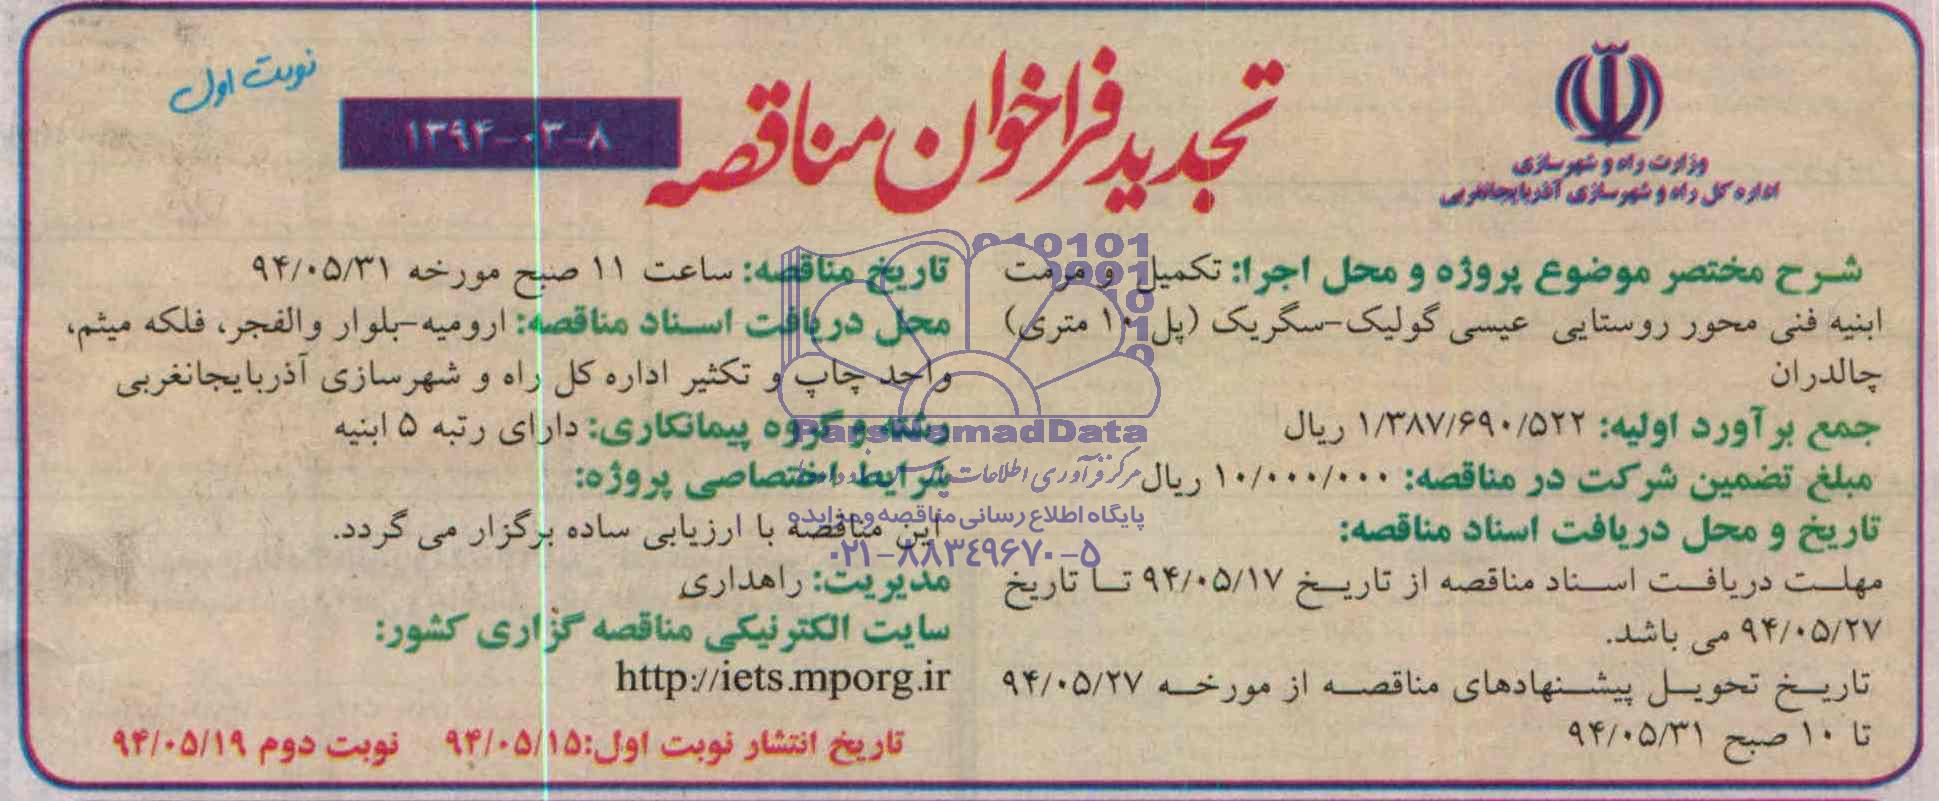 وزارت راه و شهرسازی
اداره کل راه و شهرسازی آذربایجانغربی
تجدید فراخوان مناقصه
۱۳۹۴-۰۳-۸
نوبت اول
شرح مختصر موضوع پروژه و محل اجرا: تکمیل و مرمت
ابنیه فنی محور روستایی عیسی گولیک-سگریک (پل ۱۰ متری)
چالدران
جمع برآورد اولیه: ۱/۳۸۷/۶۹۰/۵۲۲ ریال
مبلغ تضمین شرکت در مناقصه: ۱۰/۰۰۰/۰۰۰ ریال
تاریخ و محل دریافت اسناد مناقصه:
مهلت دریافت اسناد مناقصه از تاریخ ۹۴/۰۵/۱۷ تا تاریخ
۹۴/۰۵/۲۷ می باشد.
تاریخ تحویل پیشنهادهای مناقصه از مورخه ۹۴/۰۵/۲۷
تا ۱۰ صبح ۹۴/۰۵/۳۱
تاریخ مناقصه: ساعت ۱۱ صبح مورخه ۹۴/۰۵/۳۱
محل دریافت اسناد مناقصه: ارومیه-بلوار والفجر، فلکه میثم،
واحد چاپ و تکثیر اداره کل راه و شهرسازی آذربایجانغربی
رشته و گروه پیمانکاری: دارای رتبه ۵ ابنیه
شرایط اختصاصی پروژه:
این مناقصه با ارزیابی ساده برگزار می گردد.
مدیریت: راهداری
سایت الکترنیکی مناقصه گزاری کشور:
http://iets.mporg.ir
تاریخ انتشار نوبت اول:۹۴/۰۵/۱۵ نوبت دوم ۹۴/۰۵/۱۹
ParsNamadData
مرکز فرآوری اطلاعات پارس نماد داده‌ها
پایگاه اطلاع رسانی مناقصه و مزایده
۰۲۱-۸۸۳۴۹۶۷۰-۵